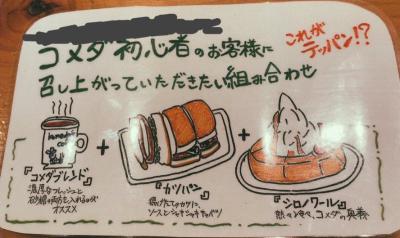 コメダ初心者のお客様に
これがテッパン!?
召し上がっていただきたい組み合わせ
+
+
『コメダブレンド』
濃厚なフレッシュと
砂糖の両方を入れるのが
オススメ
『カツパン』
揚げたてのカツに、
ソースとシャキシャキキャベツ
『シロノワール』
熱々と冷え、コメダの奥義